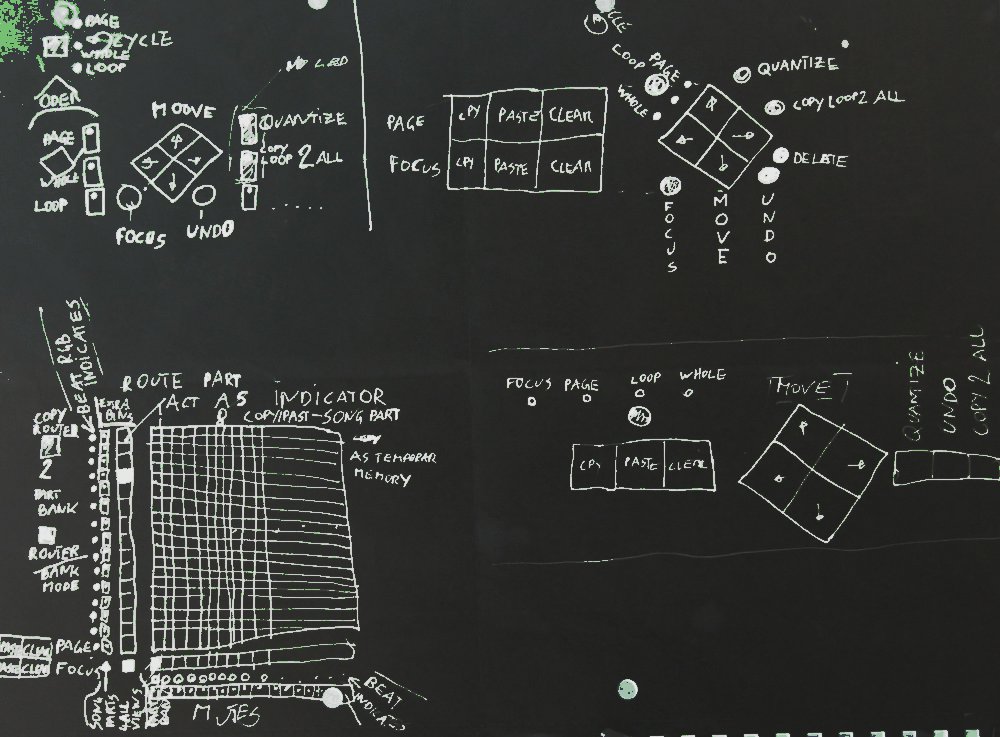 PAGE
CYCLE
WHOLE
LOOP
ODER
NO LED
MOOVE
PAGE
LOOP
QUANTIZE
COPY
LOOP 2 ALL
FOCUS
UNDO
PAGE
FOCUS
CPY PASTE CLEAR
CPY PASTE CLEAR
LOOP
PAGE
WHOLE
QUANTIZE
COPY LOOP 2 ALL
DELETE
FOCUS
MOVE
UNDO
BEAT RGB
INDICATES
ROUTE PART
ACT AS INDICATOR
COPY/PAST-SONG PART
AS TEMPORAR
MEMORY
COPY
ROUTER
2
PART
BANK
ROUTER
BANK
MODE
PAGE
FOCUS
SONG
PARTS
VIEWS
MUTES
BEAT
FOCUS PAGE LOOP WHOLE
CPY PASTE CLEAR
MOVE
QUANTIZE
UNDO
COPY 2 ALL